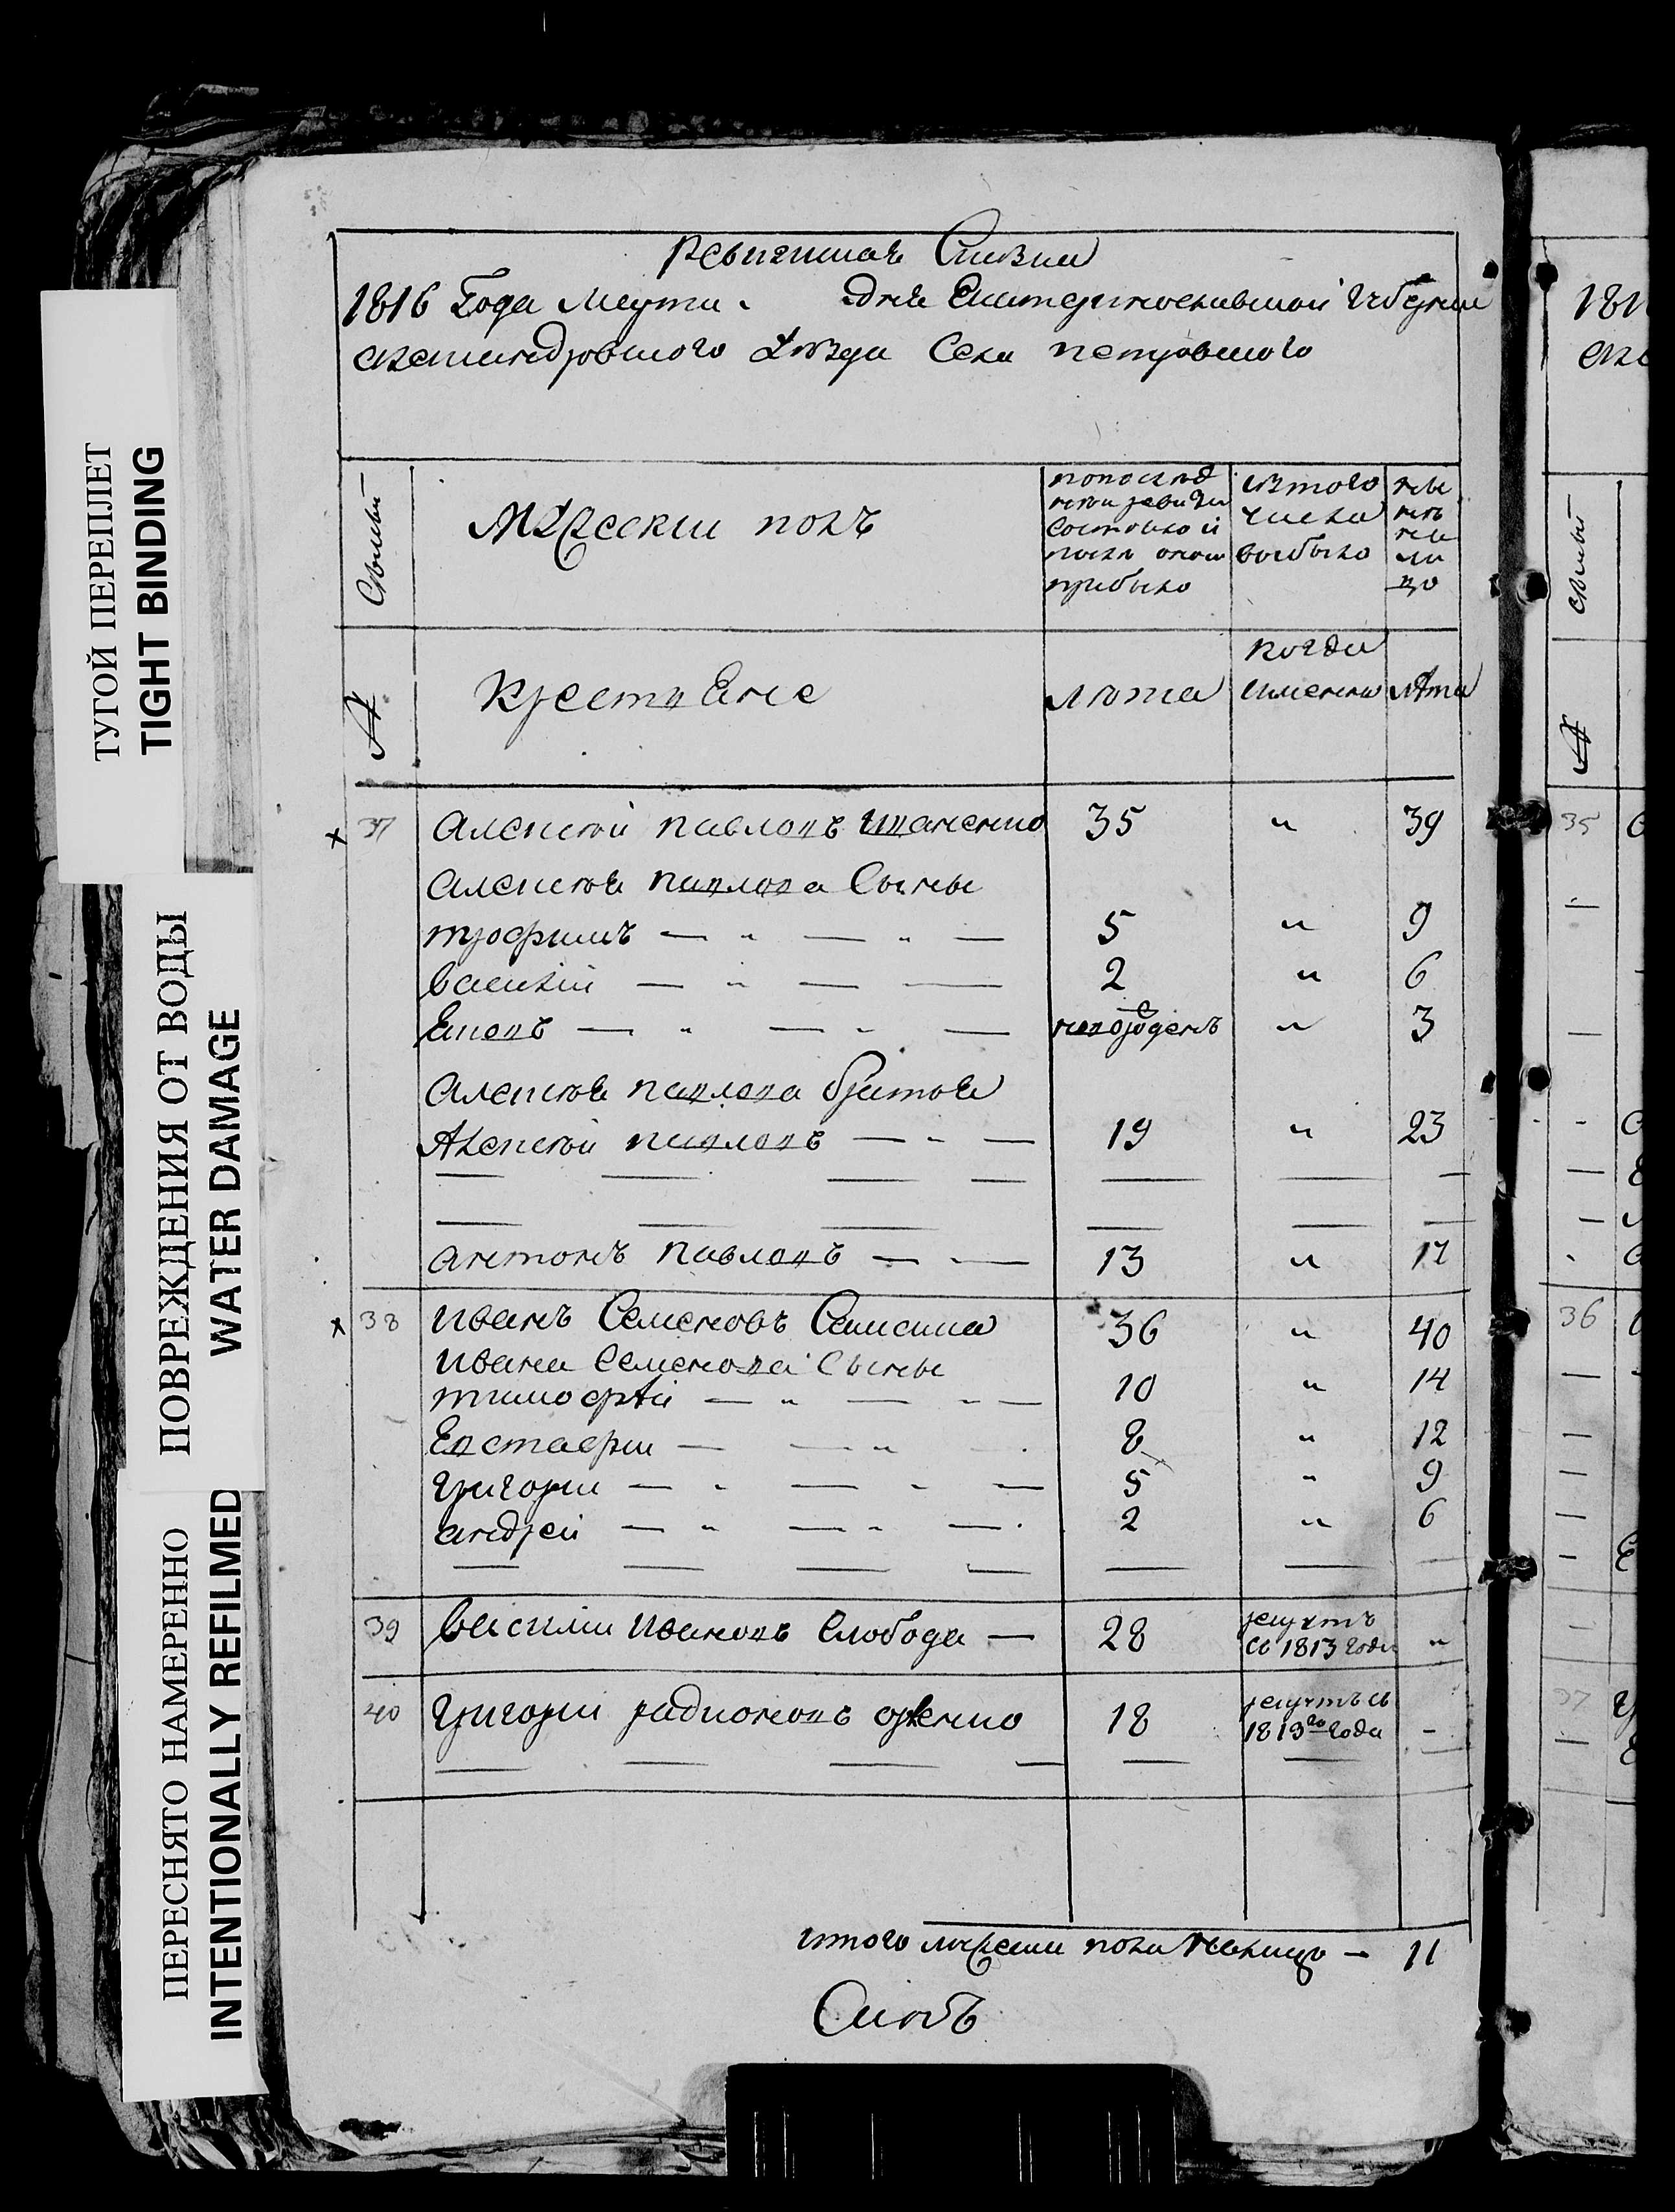 ТУГОЙ ПЕРЕПЛЕТ
TIGHT BINDING
ПОВРЕЖДЕНИЯ ОТ ВОДЫ
WATER DAMAGE
ПЕРЕСНЯТО НАМЕРЕННО
INTENTIONALLY REFILMED
Ревизская Сказка
1816 Года Марта дня Екатеринославской Губернии
александровского уезда Села петровского
Семьи
Мужеский полъ
по послед
ней ревизии
Состояло и
после оной
прибыло
из того
числа
выбыло
ны
не
на
ли
цо
№
крестьяне
лета
когда
именно
лета
37 алексей павловъ 35 " 39
алексея павлова Сыны
трофимъ 5 " 9
василий 2 " 6
новорожденъ " 3
алексея павлова братья
Алексей павловъ 19 " 23
антонъ павловъ 13 " 17
38 иванъ Семеновъ 36 " 40
ивана Семенова Сыны
тимофей 10 " 14
Евстафий 8 " 12
григорий 5 " 9
андрей 2 " 6
39 василий ивановъ Слобода 28
рекрутъ
съ 1813 года "
40 григорий радионовъ 18
рекрутъ съ
1813го года
итого мужеска пола налицо — 11
181
35
36
37